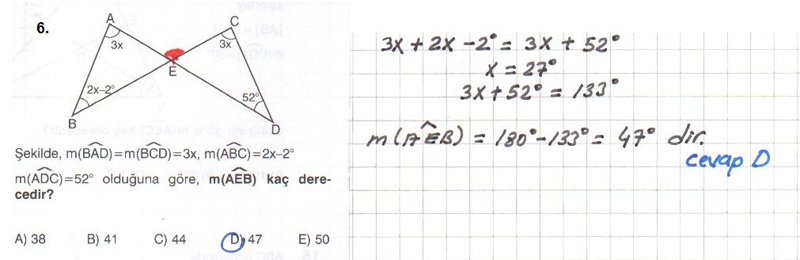 6.
A
C
3x
3x
E
2x–2°
52°
B
D
Şekilde, m(BAD)=m(BCD)=3x, m(ABC)=2x–2°
m(ADC)=52° olduğuna göre, m(AEB) kaç dere-
cedir?
A) 38 B) 41 C) 44 D) 47 E) 50
3x + 2x – 2° = 3x + 52°
x = 27°
3x + 52° = 133°
m(AEB) = 180° – 133° = 47° dir.
cevap D